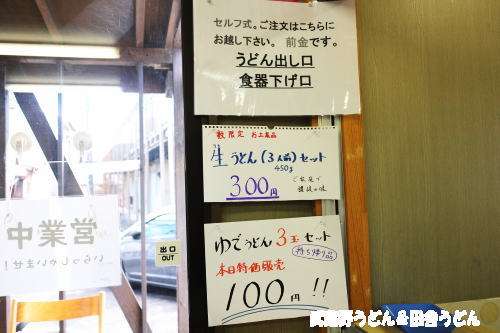 セルフ式。ご注文はこちらに
お越し下さい。 前金です。
うどん出し口
食器下げ口
数限定 お土産品
生うどん(3人前)セット
450g
300円
ご家庭で
讃岐の味
ゆでうどん3玉セット
持ち帰り品
本日特価販売
100円!!
出口
OUT
営業中
いらっしゃいませ!
武蔵野うどん&田舎うどん